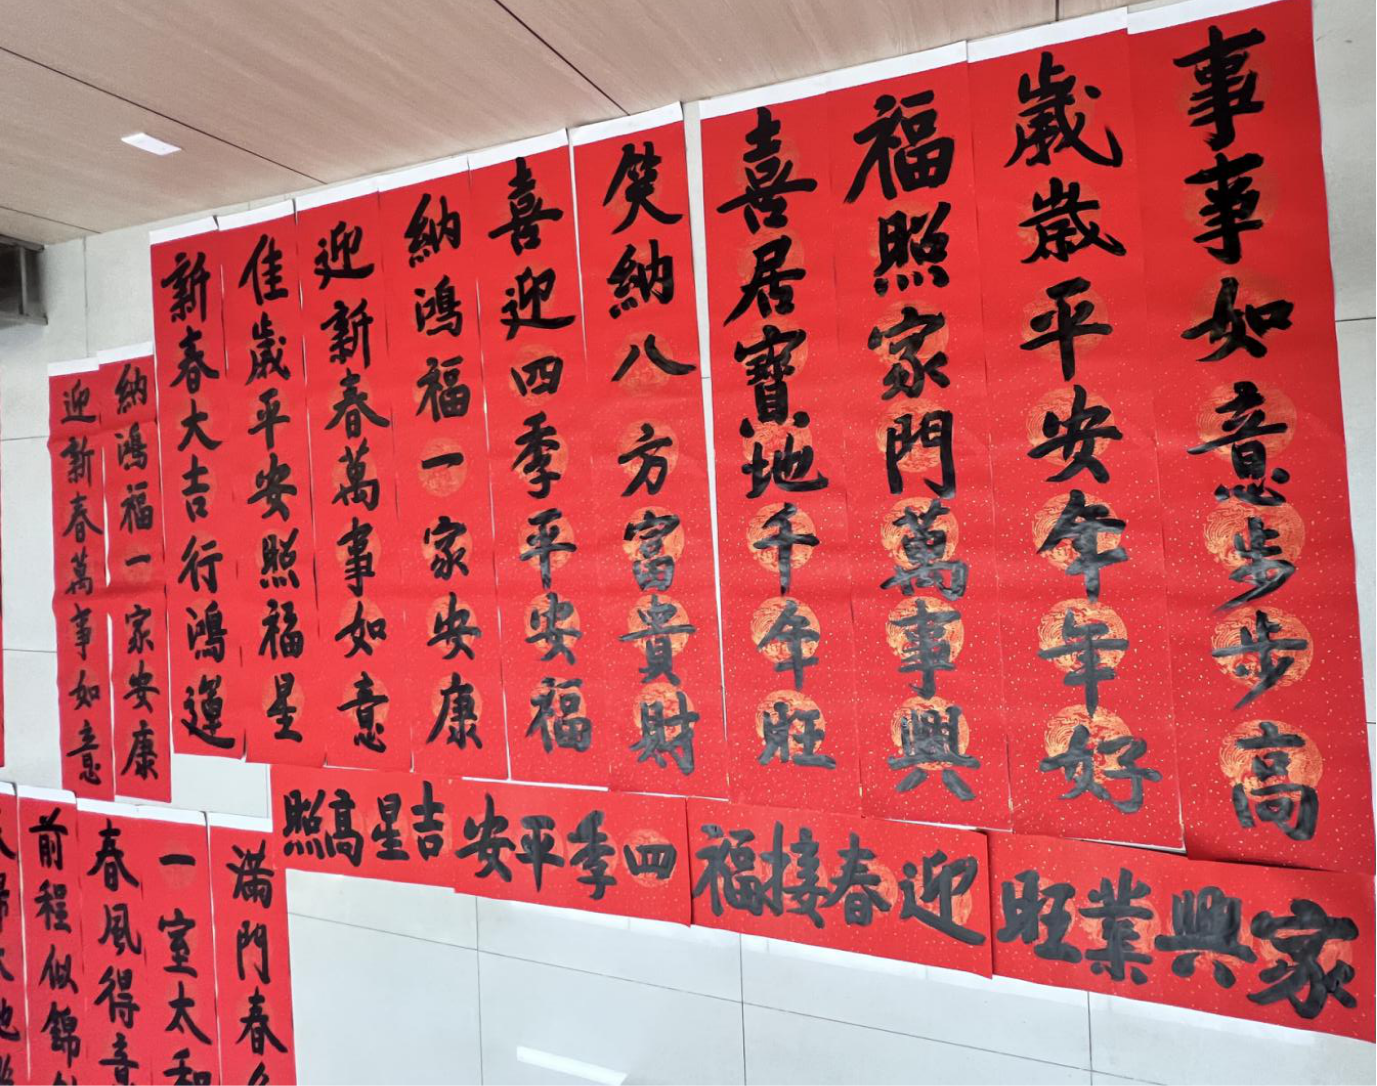 事事如意步步高
歲歲平安年年好
福照家門萬事興
喜居寶地千年旺
笑納八方富貴財
喜迎四季平安福
納鴻福一家安康
迎新春萬事如意
佳歲平安照福星
新春大吉行鴻運
納鴻福一家安康
迎新春萬事如意
家興業旺
迎春接福
四季平安
吉星高照
滿門春
一室太和
春風得意
前程似錦